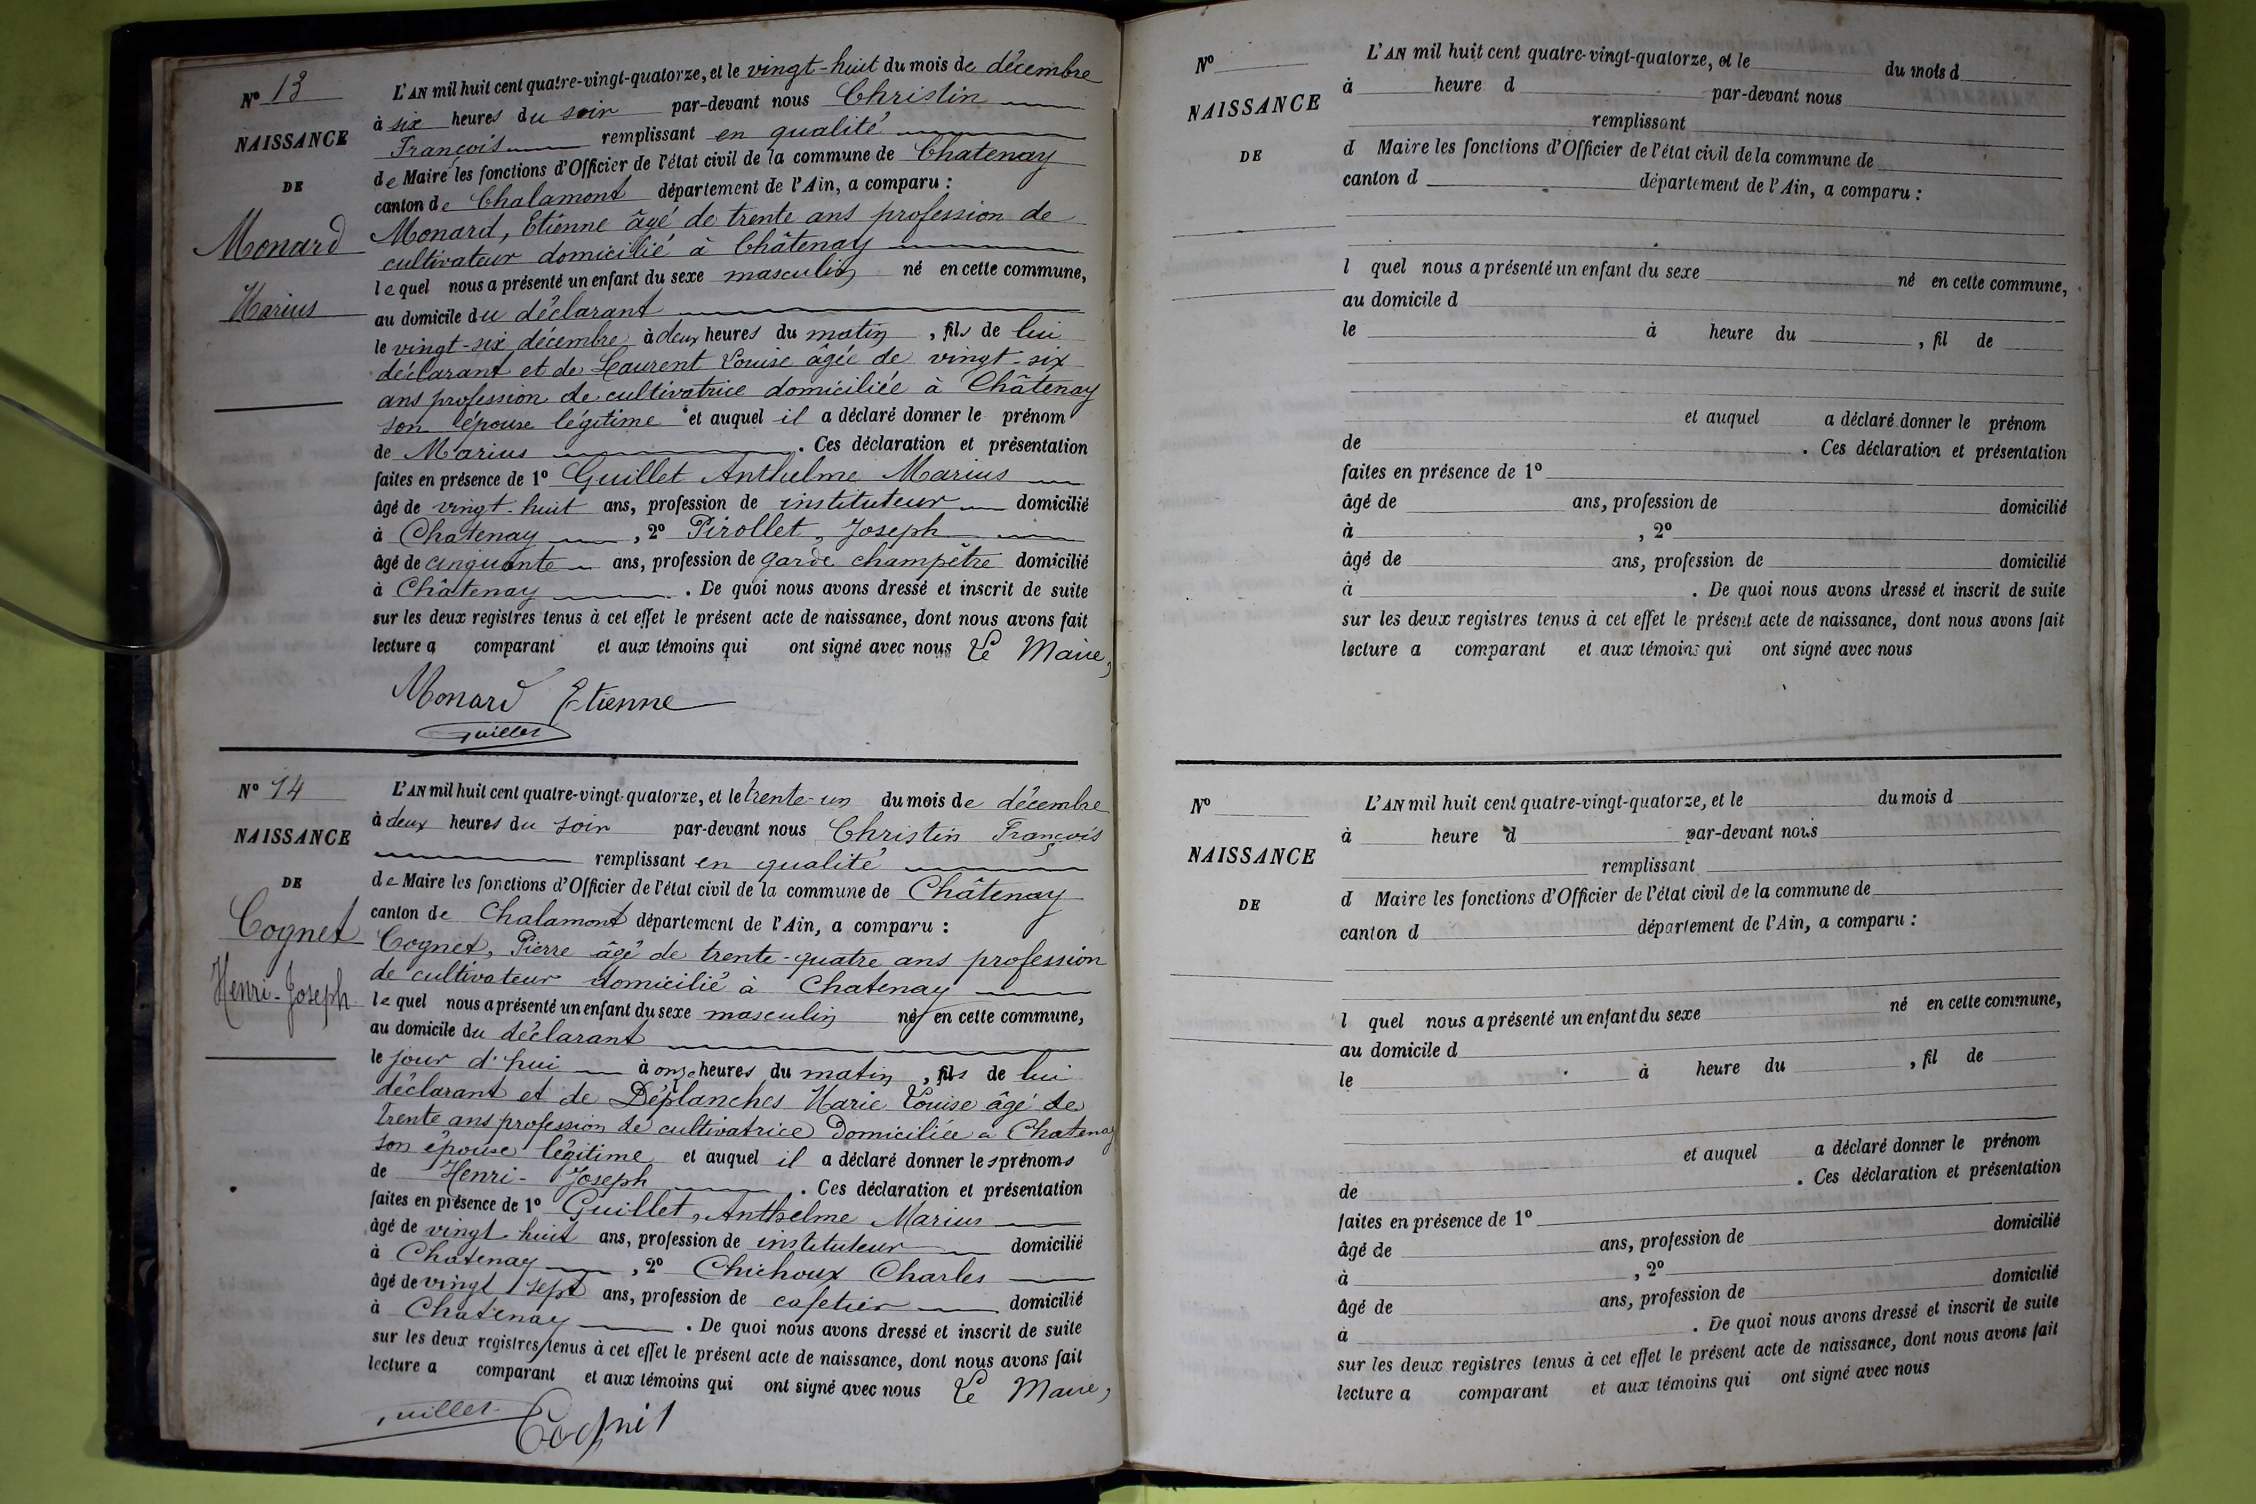 Nº 13
NAISSANCE
DE
Monard
Marius
L'AN mil huit cent quatre-vingt-quatorze, et le vingt-huit du mois de décembre
à six heures du soir par-devant nous Christin
François remplissant en qualité
de Maire les fonctions d'Officier de l'état civil de la commune de Chatenay
canton de Chalamont département de l'Ain, a comparu :
Monard, Etienne âgé de trente ans profession de
cultivateur domicilié à Châtenay
lequel nous a présenté un enfant du sexe masculin né en cette commune,
au domicile du déclarant
le vingt-six décembre à deux heures du matin, fils de lui
déclarant et de Laurent Louise âgée de vingt-six
ans profession de cultivatrice domiciliée à Châtenay
son épouse légitime et auquel il a déclaré donner le prénom
de Marius. Ces déclaration et présentation
faites en présence de 1º Guillet Anthelme Marius
âgé de vingt-huit ans, profession de instituteur domicilié
à Chatenay, 2º Pirollet, Joseph
âgé de cinquante ans, profession de garde champêtre domicilié
à Châtenay. De quoi nous avons dressé et inscrit de suite
sur les deux registres tenus à cet effet le présent acte de naissance, dont nous avons fait
lecture a comparant et aux témoins qui ont signé avec nous Le Maire,
Monard Etienne
Guillet
Nº 14
NAISSANCE
DE
Cognet
Henri-Joseph
L'AN mil huit cent quatre-vingt-quatorze, et le trente-un du mois de décembre
à deux heures du soir par-devant nous Christin François
remplissant en qualité
de Maire les fonctions d'Officier de l'état civil de la commune de Châtenay
canton de Chalamont département de l'Ain, a comparu :
Cognet, Pierre âgé de trente-quatre ans profession
de cultivateur domicilié à Chatenay
lequel nous a présenté un enfant du sexe masculin né en cette commune,
au domicile du déclarant
le jour d'hui à onze heures du matin, fils de lui
déclarant et de Déplanches Marie Louise âgé de
trente ans profession de cultivatrice domiciliée à Chatenay
son épouse légitime et auquel il a déclaré donner les prénoms
de Henri-Joseph. Ces déclaration et présentation
faites en présence de 1º Guillet, Anthelme Marius
âgé de vingt huit ans, profession de instituteur domicilié
à Chatenay, 2º Chichoux Charles
âgé de vingt sept ans, profession de cafetier domicilié
à Chatenay. De quoi nous avons dressé et inscrit de suite
sur les deux registres tenus à cet effet le présent acte de naissance, dont nous avons fait
lecture a comparant et aux témoins qui ont signé avec nous Le Maire,
Guillet
Cognet
Nº
NAISSANCE
DE
L'AN mil huit cent quatre-vingt-quatorze, et le du mois d
à heure d par-devant nous
remplissant
d Maire les fonctions d'Officier de l'état civil de la commune de
canton d département de l'Ain, a comparu :
l quel nous a présenté un enfant du sexe né en cette commune,
au domicile d
le à heure du , fil de
et auquel a déclaré donner le prénom
de . Ces déclaration et présentation
faites en présence de 1º
âgé de ans, profession de domicilié
à , 2º
âgé de ans, profession de domicilié
à . De quoi nous avons dressé et inscrit de suite
sur les deux registres tenus à cet effet le présent acte de naissance, dont nous avons fait
lecture a comparant et aux témoins qui ont signé avec nous
Nº
NAISSANCE
DE
L'AN mil huit cent quatre-vingt-quatorze, et le du mois d
à heure d par-devant nous
remplissant
d Maire les fonctions d'Officier de l'état civil de la commune de
canton d département de l'Ain, a comparu :
l quel nous a présenté un enfant du sexe né en cette commune,
au domicile d
le à heure du , fil de
et auquel a déclaré donner le prénom
de . Ces déclaration et présentation
faites en présence de 1º
âgé de ans, profession de domicilié
à , 2º
âgé de ans, profession de domicilié
à . De quoi nous avons dressé et inscrit de suite
sur les deux registres tenus à cet effet le présent acte de naissance, dont nous avons fait
lecture a comparant et aux témoins qui ont signé avec nous